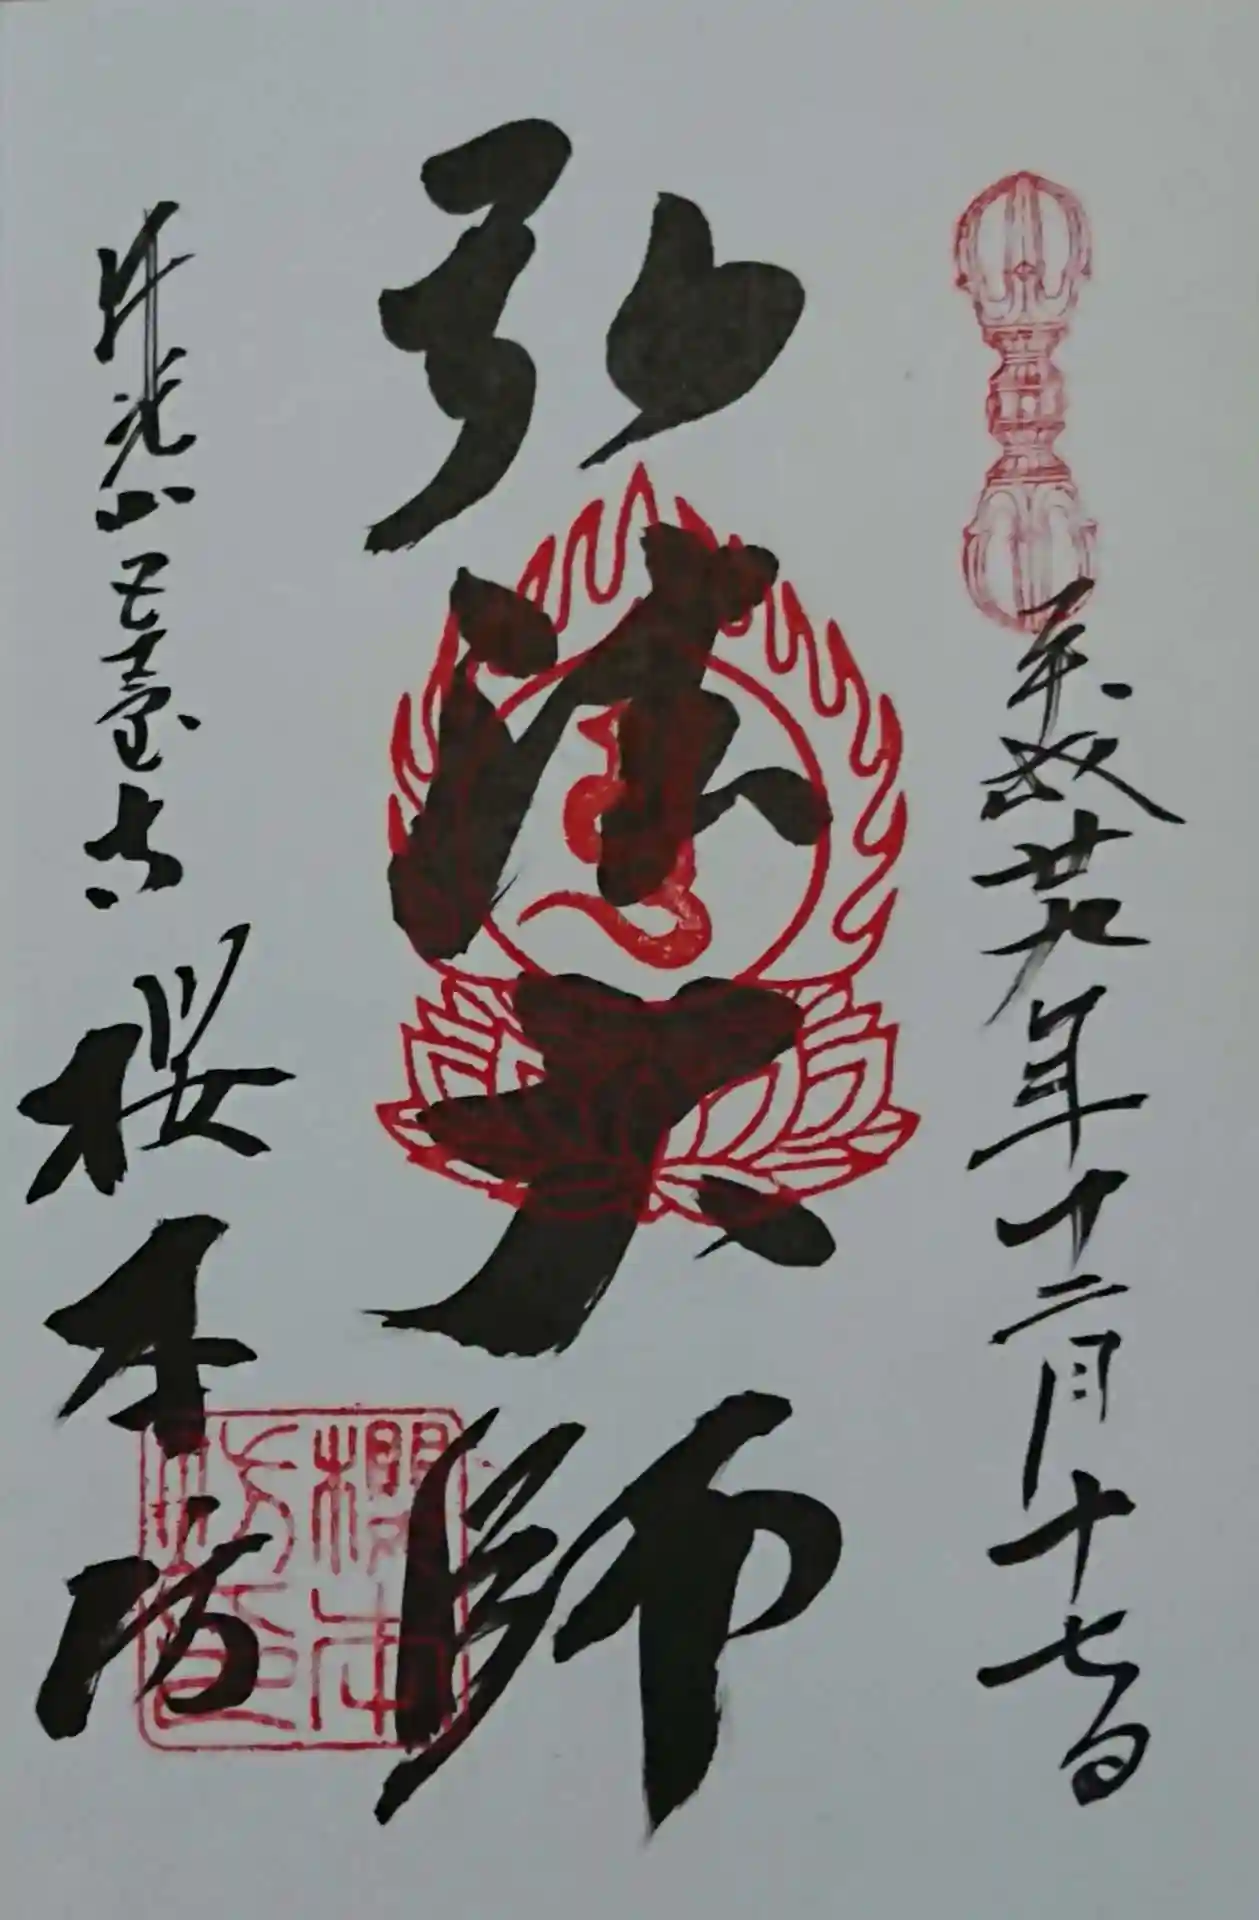 平成廿九年十二月十七日
弘法大師
井光山五臺寺
桜本坊
櫻本坊